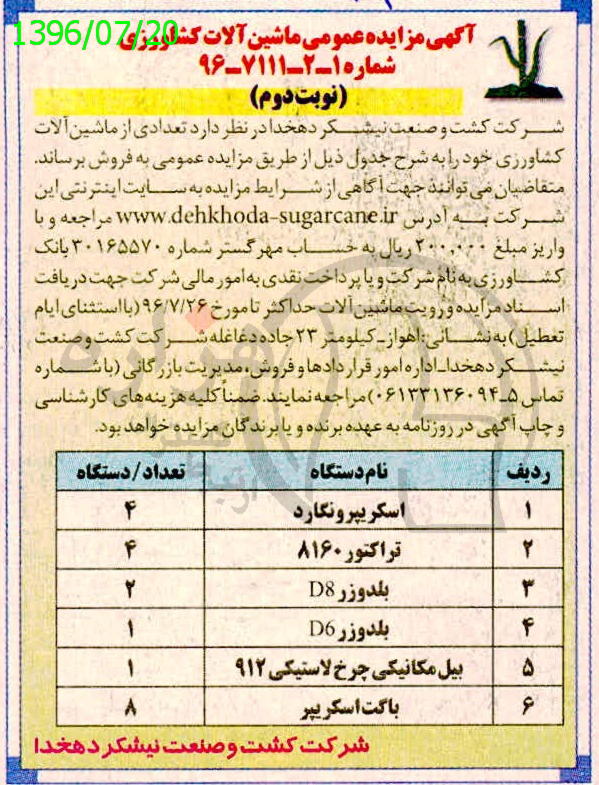 1396/07/20
آگهی مزایده عمومی ماشین آلات کشاورزی
شماره ۱ـ۲ـ۷۱۱۱ـ۹۶
(نوبت دوم)
شرکت کشت و صنعت نیشکر دهخدا در نظر دارد تعدادی از ماشین آلات
کشاورزی خود را به شرح جدول ذیل از طریق مزایده عمومی به فروش برساند.
متقاضیان می توانند جهت آگاهی از شرایط مزایده به سایت اینترنتی این
شرکت به آدرس www.dehkhoda-sugarcane.ir مراجعه و با
واریز مبلغ ۲۰۰,۰۰۰ ریال به حساب مهر گستر شماره ۳۰۱۶۵۵۷۰ بانک
کشاورزی به نام شرکت و یا پرداخت نقدی به امور مالی شرکت جهت دریافت
اسناد مزایده و رویت ماشین آلات حداکثر تا مورخ ۹۶/۷/۲۶ (با استثنای ایام
تعطیل) به نشانی: اهواز ـ کیلومتر ۲۳ جاده دغاغله شرکت کشت و صنعت
نیشکر دهخدا ـ اداره امور قراردادها و فروش، مدیریت بازرگانی (با شماره
تماس ۵ـ۰۶۱۳۳۱۳۶۰۹۴) مراجعه نمایند. ضمناً کلیه هزینه های کارشناسی
و چاپ آگهی در روزنامه به عهده برنده و یا برندگان مزایده خواهد بود.
ردیف نام دستگاه تعداد/دستگاه
۱ اسکریپرونگارد ۴
۲ تراکتور ۸۱۶۰ ۴
۳ بلدوزر D8 ۲
۴ بلدوزر D6 ۱
۵ بیل مکانیکی چرخ لاستیکی ۹۱۲ ۱
۶ باگت اسکریپر ۸
شرکت کشت و صنعت نیشکر دهخدا
هزاره